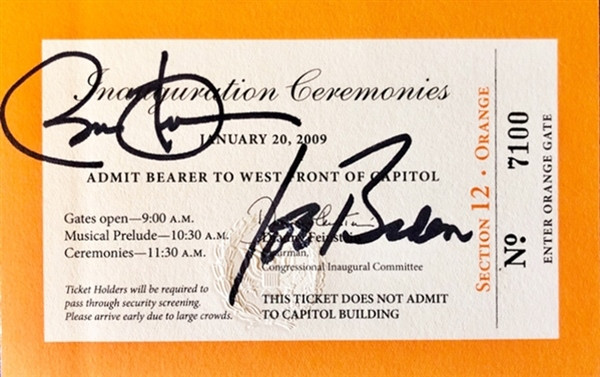 Inauguration Ceremonies
JANUARY 20, 2009
ADMIT BEARER TO WEST FRONT OF CAPITOL
Gates open—9:00 A.M.
Musical Prelude—10:30 A.M.
Ceremonies—11:30 A.M.
Ticket Holders will be required to
pass through security screening.
Please arrive early due to large crowds.
Joe Biden
Dianne Feinstein
Chairman,
Congressional Inaugural Committee
THIS TICKET DOES NOT ADMIT
TO CAPITOL BUILDING
SECTION 12 · ORANGE
Nº 7100
ENTER ORANGE GATE